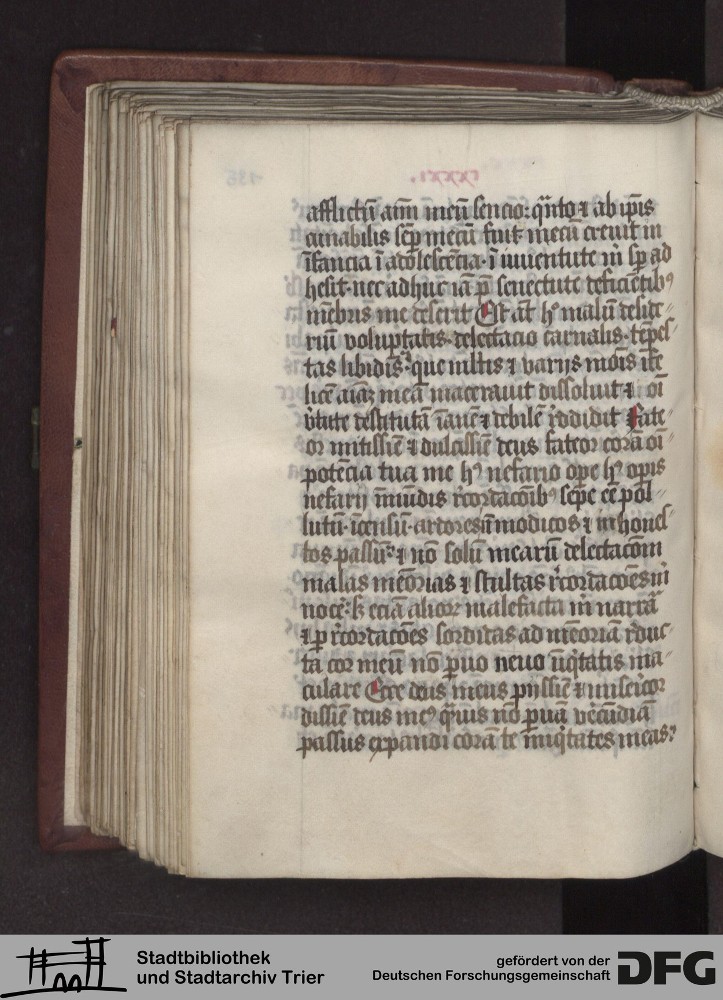 afflictū aīm meū sencio: q̄nto ⁊ ab ip̄is
cunabilis sēp mecū fuit mecū creuit in
īfancia ī adolescēcia · ī iuuentute m̄ sp̄ ad
hesit · nec adhuc iā p̄ senectute deficiētibꝰ
mēbris me deserit Est āt hꝰ malū deside-
riū voluptatis · delectacio carnalis · tēpes-
tas libidīs · que ml̄tis ⁊ varijs modis
aīaꝫ meā macerauit dissoluit ⁊ oī
v̄tute destitutā īanē ⁊ debilē r̄ddidit Fate-
or mitissīe ⁊ dulcissīe deus fateor corā oī
potēcia tua me hꝰ nefario ope hꝰ opis
nefarij īmūdis r̄cordacōībꝰ sepe eē pol-
lutū · īcensū · ardores īmodicos ⁊ inhones-
tos passū ⁊ nō solū mearū delectacōm
malas mēorias ⁊ stultas r̄cordacōes m̄
nocē · sꝫ eciā alioꝝ malefacta m̄ narrā
⁊ p r̄cordacōes sordidas ad mēoriā r̄duc-
ta cor meū nō p̄uo neuo īiq̄tatis ma-
culare Ecce deus meus pijssīe ⁊ misericor
dissīe deus meꝰ q̄uis nō p̄uā v̄ecūdiā
passus expandi corā te īniq̄tates meas
Stadtbibliothek
und Stadtarchiv Trier
gefördert von der
Deutschen Forschungsgemeinschaft
DFG